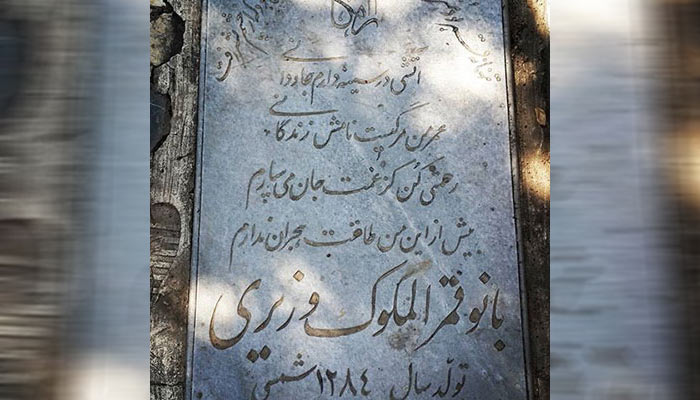 آتشی در سینه دارم جاودانی
عمر من مرگیست نامش زندگانی
رحمتی کن کز غمت جان می سپارم
بیش از این من طاقت هجران ندارم
بانو قمر الملوک وزیری
تولد سال ۱۲۸۴ شمسی